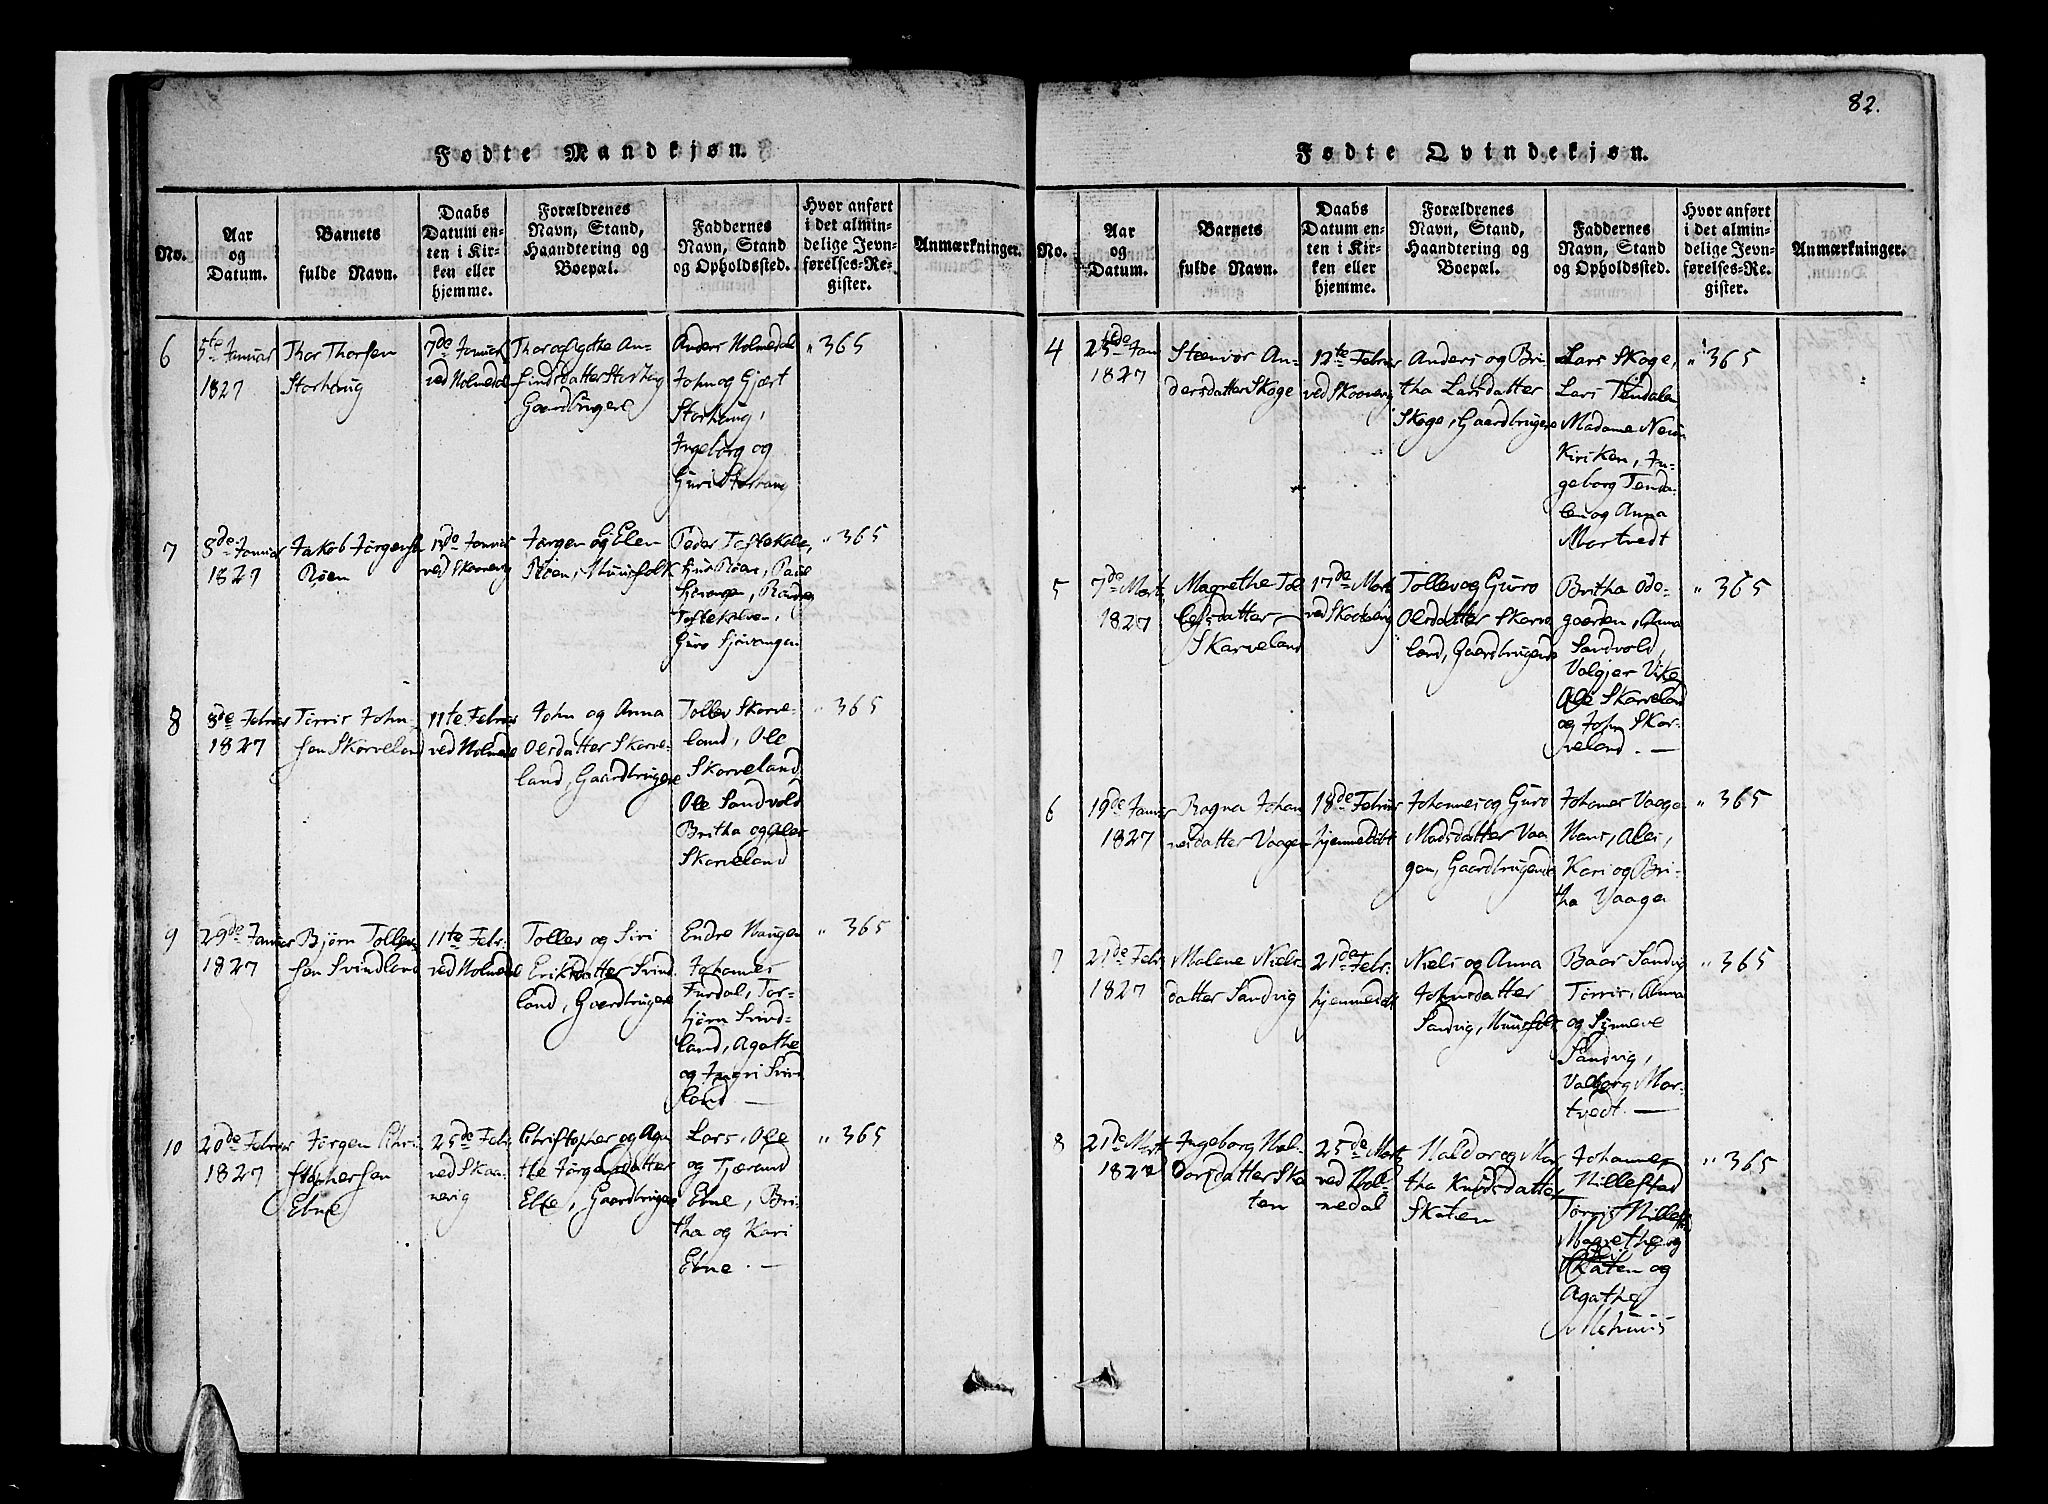 82.
Fødte Mandkjøn.
No.
Aar
og
Datum.
Barnets
fulde Navn.
Daabs
Datum en-
ten i Kir-
ken eller
hjemme.
Forældrenes
Navn, Stand,
Haandtering og
Boepæl.
Faddernes
Navn, Stand
og Opholdssted.
Hvor anført
i det almin-
delige Jevn-
førelses-Re-
gister.
Anmærkninger.
6
5te Januar
1827
Thor Thorsen
Storhaug
7de Januar
ved Holmedal
Thor og Agathe An-
findsdatter Storhaug
Gaardbrugere
Anders Holmedal
John og Gjært
Storhaug,
Ingeborg og
Guri Storhaug
" 365
7
8de Januar
1827
Jakob Jørgens.
Røen
ved Skaanevig
Jørgen og Elen
Røen, Huusfolk
Peder Toftekalv,
Røen, Paul
Toftekalven,
Guro
" 365
8
3de Februar
1827
Torris John-
son Skorveland
11te Februar
ved Holmedal
John og Anna
Olsdatter Skorve-
land, Gaardbrugere
Tollev Skorve-
land, Ole
Skorveland
Ole Sandvold
Britha og
Skorveland
" 365
9
29de Januar
1827
Bjørn Tollev-
son Svindland
11te Febr.
ved Holmedal
Tollev og Siri
Eriksdatter Svind-
land, Gaardbrugere
Endre Haugen
Johannes
Furdal, Tor-
bjørn Svind-
land, Agathe
og Ingri Svind
land —
" 365
10
20de Februar
1827
Jørgen Chri-
stophersen
Ebne
25de Feb.
ved Skaa-
nevig
Christopher og Aga-
the Jørgensdatter
Ebne, Gaardbrugere
Lars, Ole
og Tjærand
Ebne, Bri-
tha og Kari
Ebne. —
" 365
Fødte Qvindekjøn.
No.
Aar
og
Datum.
Barnets
fulde Navn.
Daabs
Datum en-
ten i Kir-
ken eller
hjemme.
Forældrenes
Navn, Stand,
Haandtering og
Boepæl.
Faddernes
Navn, Stand
og Opholdssted.
Hvor anført
i det almin-
delige Jevn-
førelses-Re-
gister.
Anmærkninger.
4
25de Jan
1827
Steenvor An-
dersdatter Skoge
ved Skaanevig
Anders og Bri-
tha Larsdatter
Skoge, Gaardbrugere
Lars Skoge,
Lars Tendalen
Madame
Kirken, In-
geborg Tenda-
len og Anna
Mortvedt
" 365
5
7de Marts
1827
Magrethe Tol-
levsdatter
Skarveland
17de Mart
ved Skaanevig
Tollev og Guro
Olsdatter Skarve
land, Gaardbrugende
Britha Øde-
gaarden, Anna
Sandvold,
Valgjer Vike
Ole Skarveland
og John Skar-
veland. —
" 365
6
19de Januar
1827
Ragna Johan
nesdatter Vaagen
18de Februar
hjemmedøbt
Johannes og Guro
Madsdatter Vaa
gen, Gaardbrugende
Johannes Vaage
Hans,
Kari og Bri-
tha Vaage
" 365
7
21de Febr
1827
Malene Niels-
datter Sandvig
21de Febr.
hjemmedøbt
Niels og Anna
Johnsdatter
Sandvig, Huusfolk
Baar Sandvig
Torris, Anna
og Synneve
Sandvig,
Valborg Mor-
tvedt —
" 365
8
21de Mart
1827
Ingeborg Hal-
dorsdatter Ska
ten
25de Marts
ved Hol-
medal
Haldor og Mar
tha Knudsdatter
Skaten
Johannes
Hillestad
Magrethe og
Skaten og
Agathe
" 365